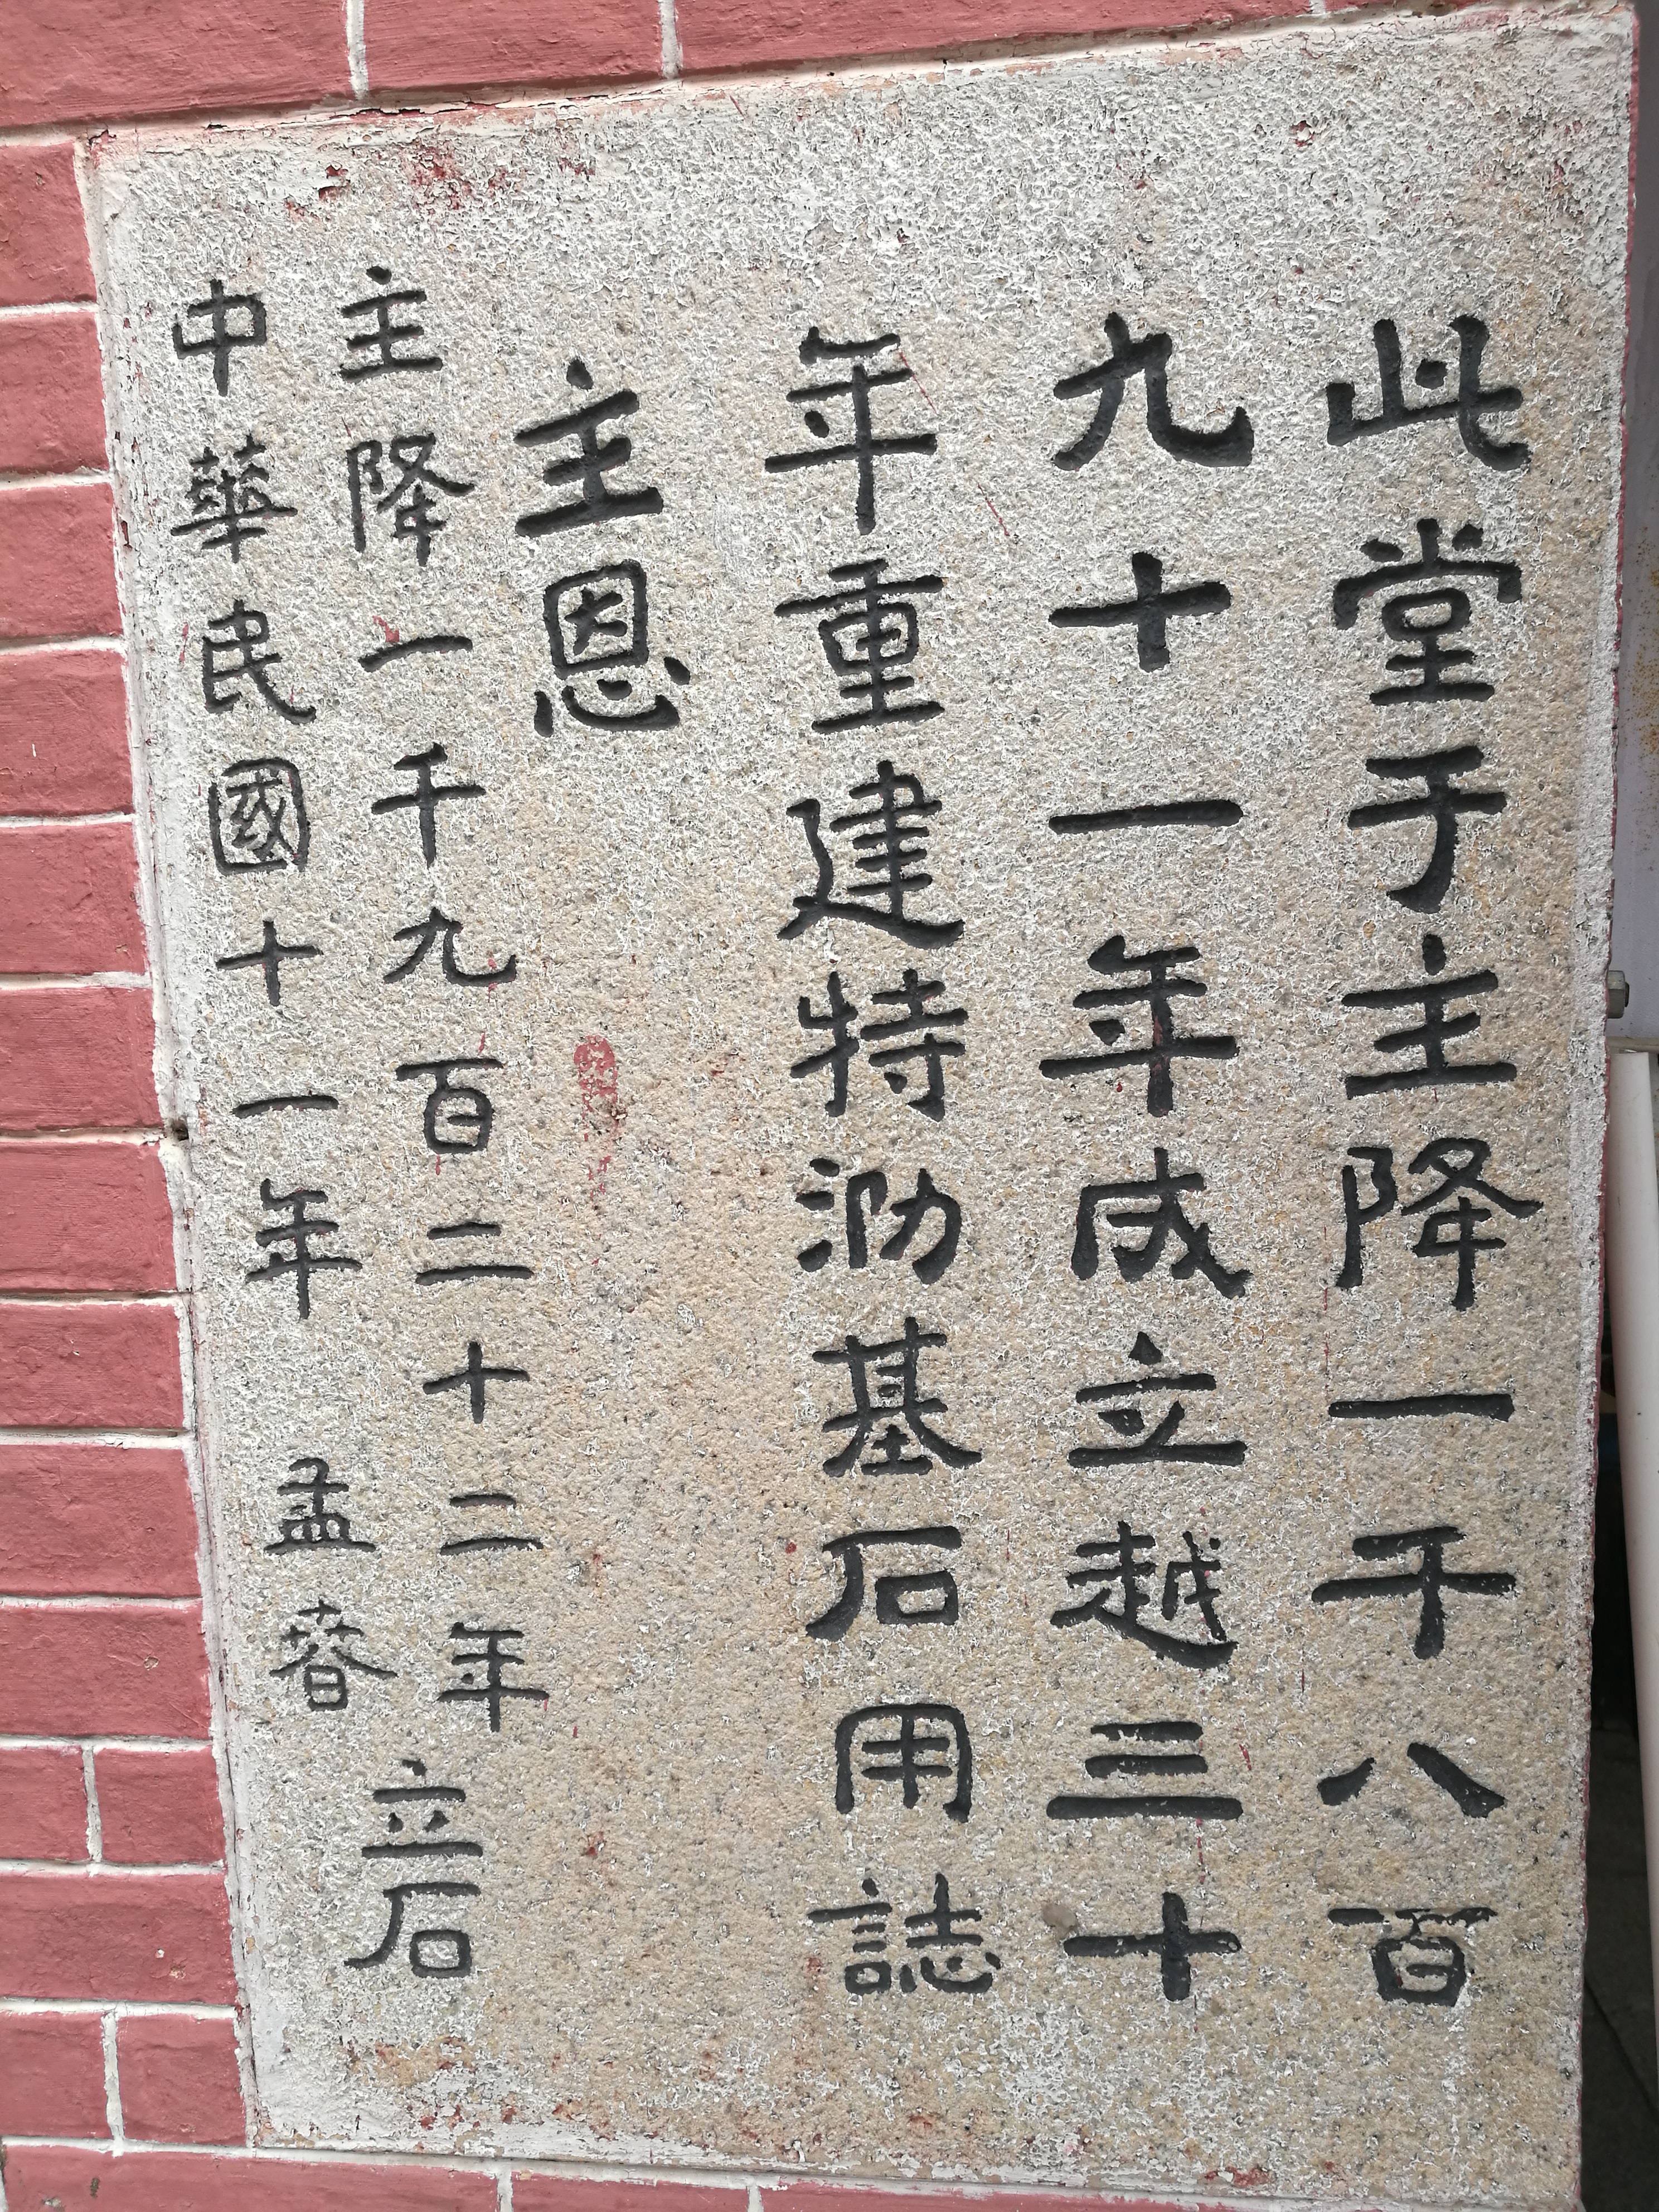 此堂于主降一千八百
九十一年成立越三十
年重建特泐基石用誌
主恩
主降一千九百二十二年
中華民國十一年
孟春
立石